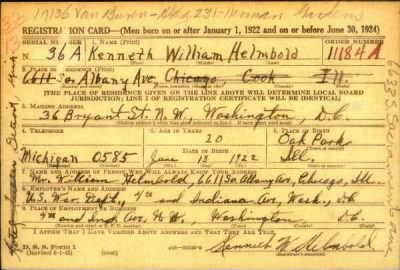 17136 Van Buren
REGISTRATION CARD—(Men born on or after January 1, 1922 and on or before June 30, 1924)
SERIAL NUMBER 1. NAME (Print) ORDER NUMBER
36 A Kenneth William Helmbold 11184A
2. PLACE OF RESIDENCE (Print)
6611 So. Albany Ave. Chicago, Cook Ill.
[THE PLACE OF RESIDENCE GIVEN ON THE LINE ABOVE WILL DETERMINE LOCAL BOARD
JURISDICTION; LINE 2 OF REGISTRATION CERTIFICATE WILL BE IDENTICAL]
3. MAILING ADDRESS
36 Bryant St. N.W. Washington, D.C.
4. TELEPHONE 5. AGE IN YEARS 6. PLACE OF BIRTH
20 Oak Park
DATE OF BIRTH
Michigan 0585 June 13 1922 Ill.
7. NAME AND ADDRESS OF PERSON WHO WILL ALWAYS KNOW YOUR ADDRESS
Mr. William Helmbold, 6611 So. Albany Ave, Chicago, Ill.
8. EMPLOYER'S NAME AND ADDRESS
U.S. War Dept., 4th and Indiana Ave., Wash., D.C.
9. PLACE OF EMPLOYMENT OR BUSINESS
4th and Ind. Ave. N.W., Washington D.C.
I AFFIRM THAT I HAVE VERIFIED ABOVE ANSWERS AND THAT THEY ARE TRUE.
D. S. S. Form 1
(Revised 6-1-42)
Kenneth W. Helmbold